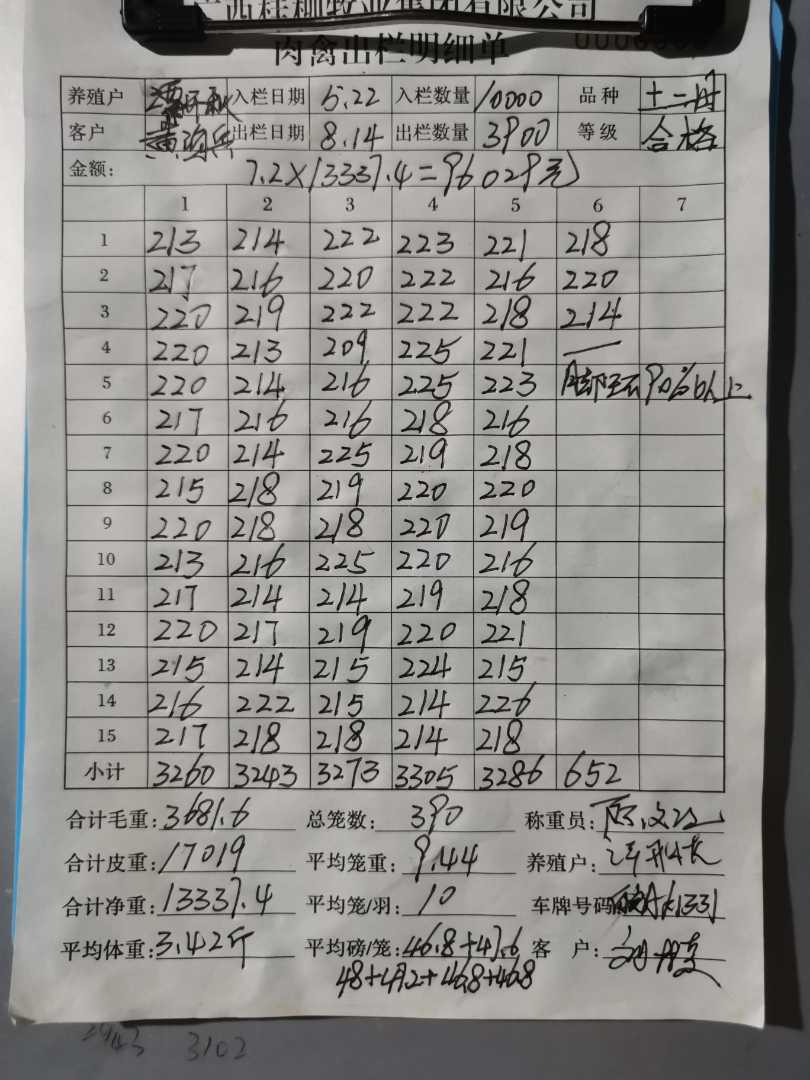 广西桂柳牧业集团有限公司
肉禽出栏明细单
养殖户 入栏日期 5.22 入栏数量 10000 品种
客户 出栏日期 8.14 出栏数量 3900 等级 合格
金额: 7.2×13337.4=96029元
1 2 3 4 5 6 7
1 213 214 222 223 221 218
2 217 216 220 222 216 220
3 220 219 222 222 218 214
4 220 213 209 225 221 —
5 220 214 216 225 223 90%以上
6 217 216 216 218 216
7 220 214 225 219 218
8 215 218 219 220 220
9 220 218 218 220 219
10 213 216 225 220 216
11 217 214 214 219 218
12 220 217 219 220 221
13 215 214 215 224 215
14 216 222 215 214 226
15 217 218 218 214 218
小计 3260 3243 3273 3305 3286 652
合计毛重: 3681.6 总笼数: 390 称重员:
合计皮重: 17019 平均笼重: 9.44 养殖户:
合计净重: 13337.4 平均笼/羽: 10 车牌号码
平均体重: 3.42斤 平均磅/笼: 46.8+47.6 客户:
48+47.2+46.8+46.8
3102